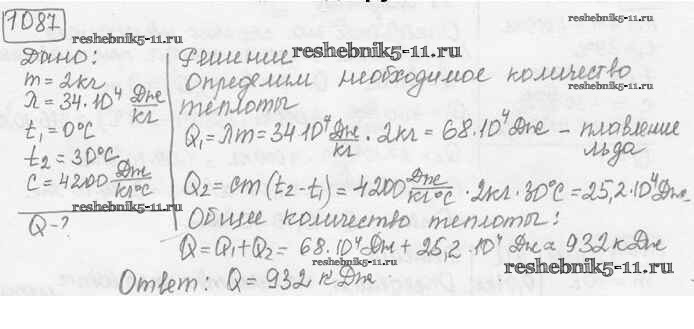 1087
reshebnik5-11.ru
Дано:
m = 2кг
λ = 34·10⁴ Дж/кг
t₁ = 0°C
t₂ = 30°C
c = 4200 Дж/кг°C
reshebnik5-11.ru
Q - ?
Решение
reshebnik5-11.ru
Определим необходимое количество
теплоты
reshebnik5-11.ru
Q₁ = λm = 34·10⁴ Дж/кг · 2кг = 68·10⁴ Дж – плавление
льда
Q₂ = cm(t₂ - t₁) = 4200 Дж/кг°C · 2кг · 30°C = 25,2·10⁴ Дж
reshebnik5-11.ru
Общее количество теплоты:
Q = Q₁ + Q₂ = 68·10⁴ Дж + 25,2·10⁴ Дж = 932 кДж
reshebnik5-11.ru
reshebnik5-11.ru
Ответ: Q = 932 кДж